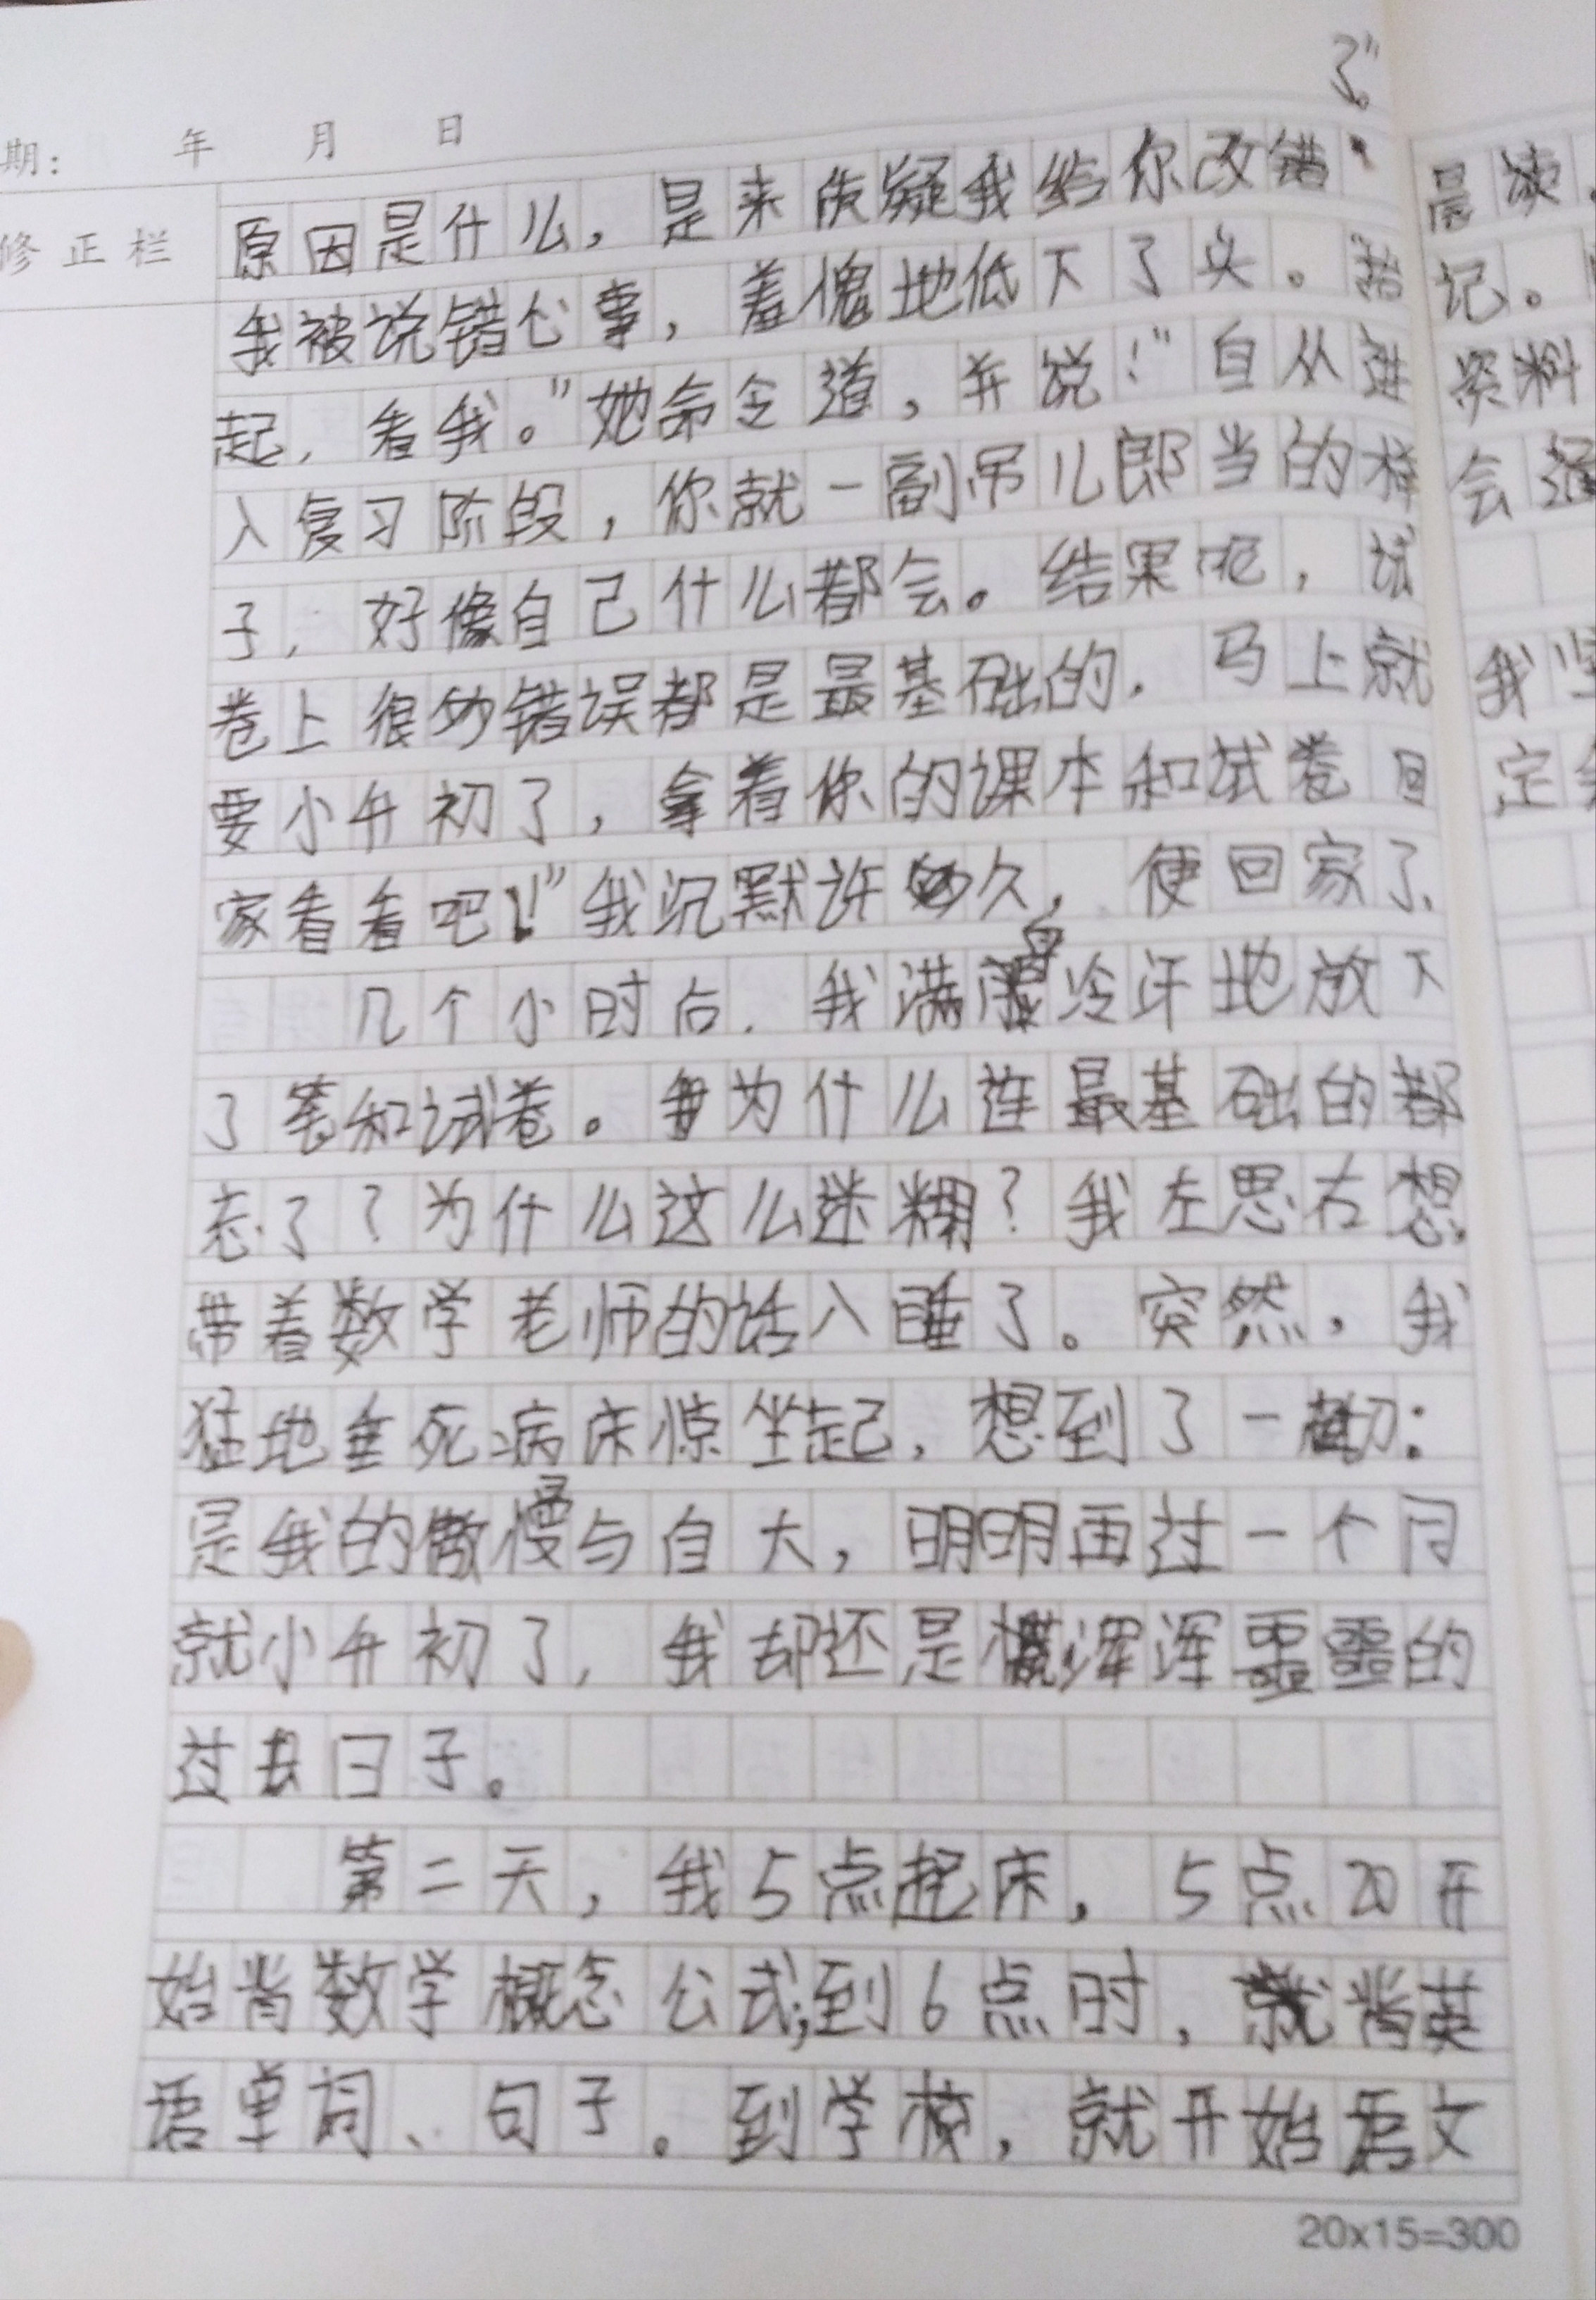 了。”
期： 年 月 日
修正栏
原因是什么，是来质疑我给你改错
我被说错心事，羞愧地低下了头。“抬
起，看我。”她命令道，并说！“自从进
入复习阶段，你就一副吊儿郎当的样
子，好像自己什么都会。结果呢，试
卷上很多错误都是最基础的，马上就
要小升初了，拿着你的课本和试卷回
家看看吧！”我沉默许久，便回家了、
几个小时后，我满身冷汗地放下
了笔和试卷。我为什么连最基础的都
忘了？为什么这么迷糊？我左思右想，
带着数学老师的话入睡了。突然，我
猛地垂死病床惊坐起，想到了一切：
是我的傲慢与自大，明明再过一个月
就小升初了，我却还是浑浑噩噩的
过去日子。
第二天，我5点起床，5点20开
始背数学概念公式；到6点时，就背英
语单词、句子。到学校，就开始语文
20×15=300
晨读
记。
资料
会
我
定